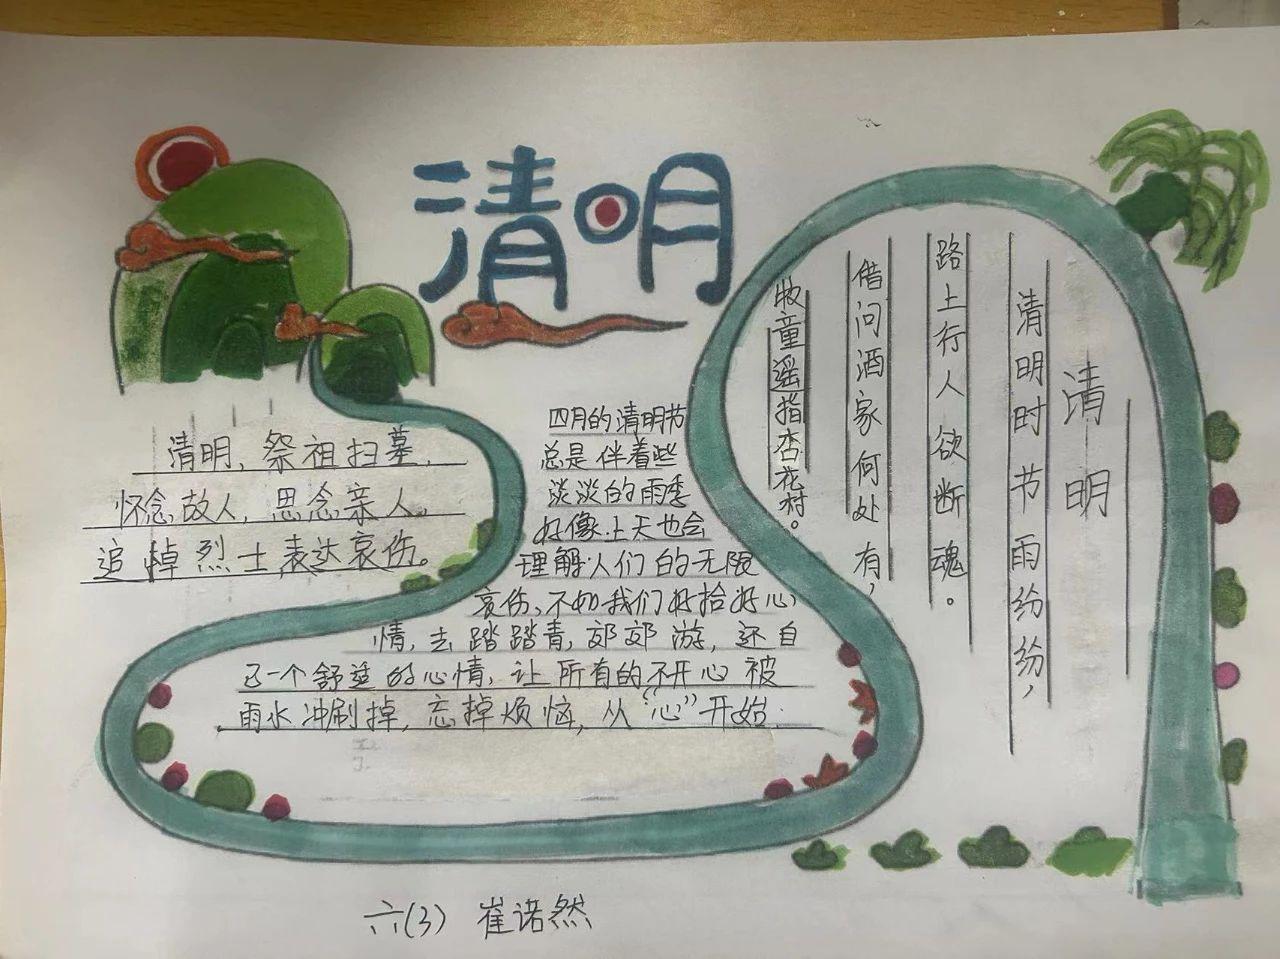 清明
清明,祭祖扫墓,
怀念故人,思念亲人。
追悼烈士表达哀伤。
四月的清明节
总是伴着些
淡淡的雨季
好像上天也会
理解人们的无限
哀伤、不如我们好拾好心
情,去踏踏青,郊郊游,还自
己一个舒适的心情,让所有的不开心被
雨水冲刷掉,忘掉烦恼,从“心”开始
清明
清明时节雨纷纷,
路上行人欲断魂。
借问酒家何处有,
牧童遥指杏花村。
六(3) 崔诺然